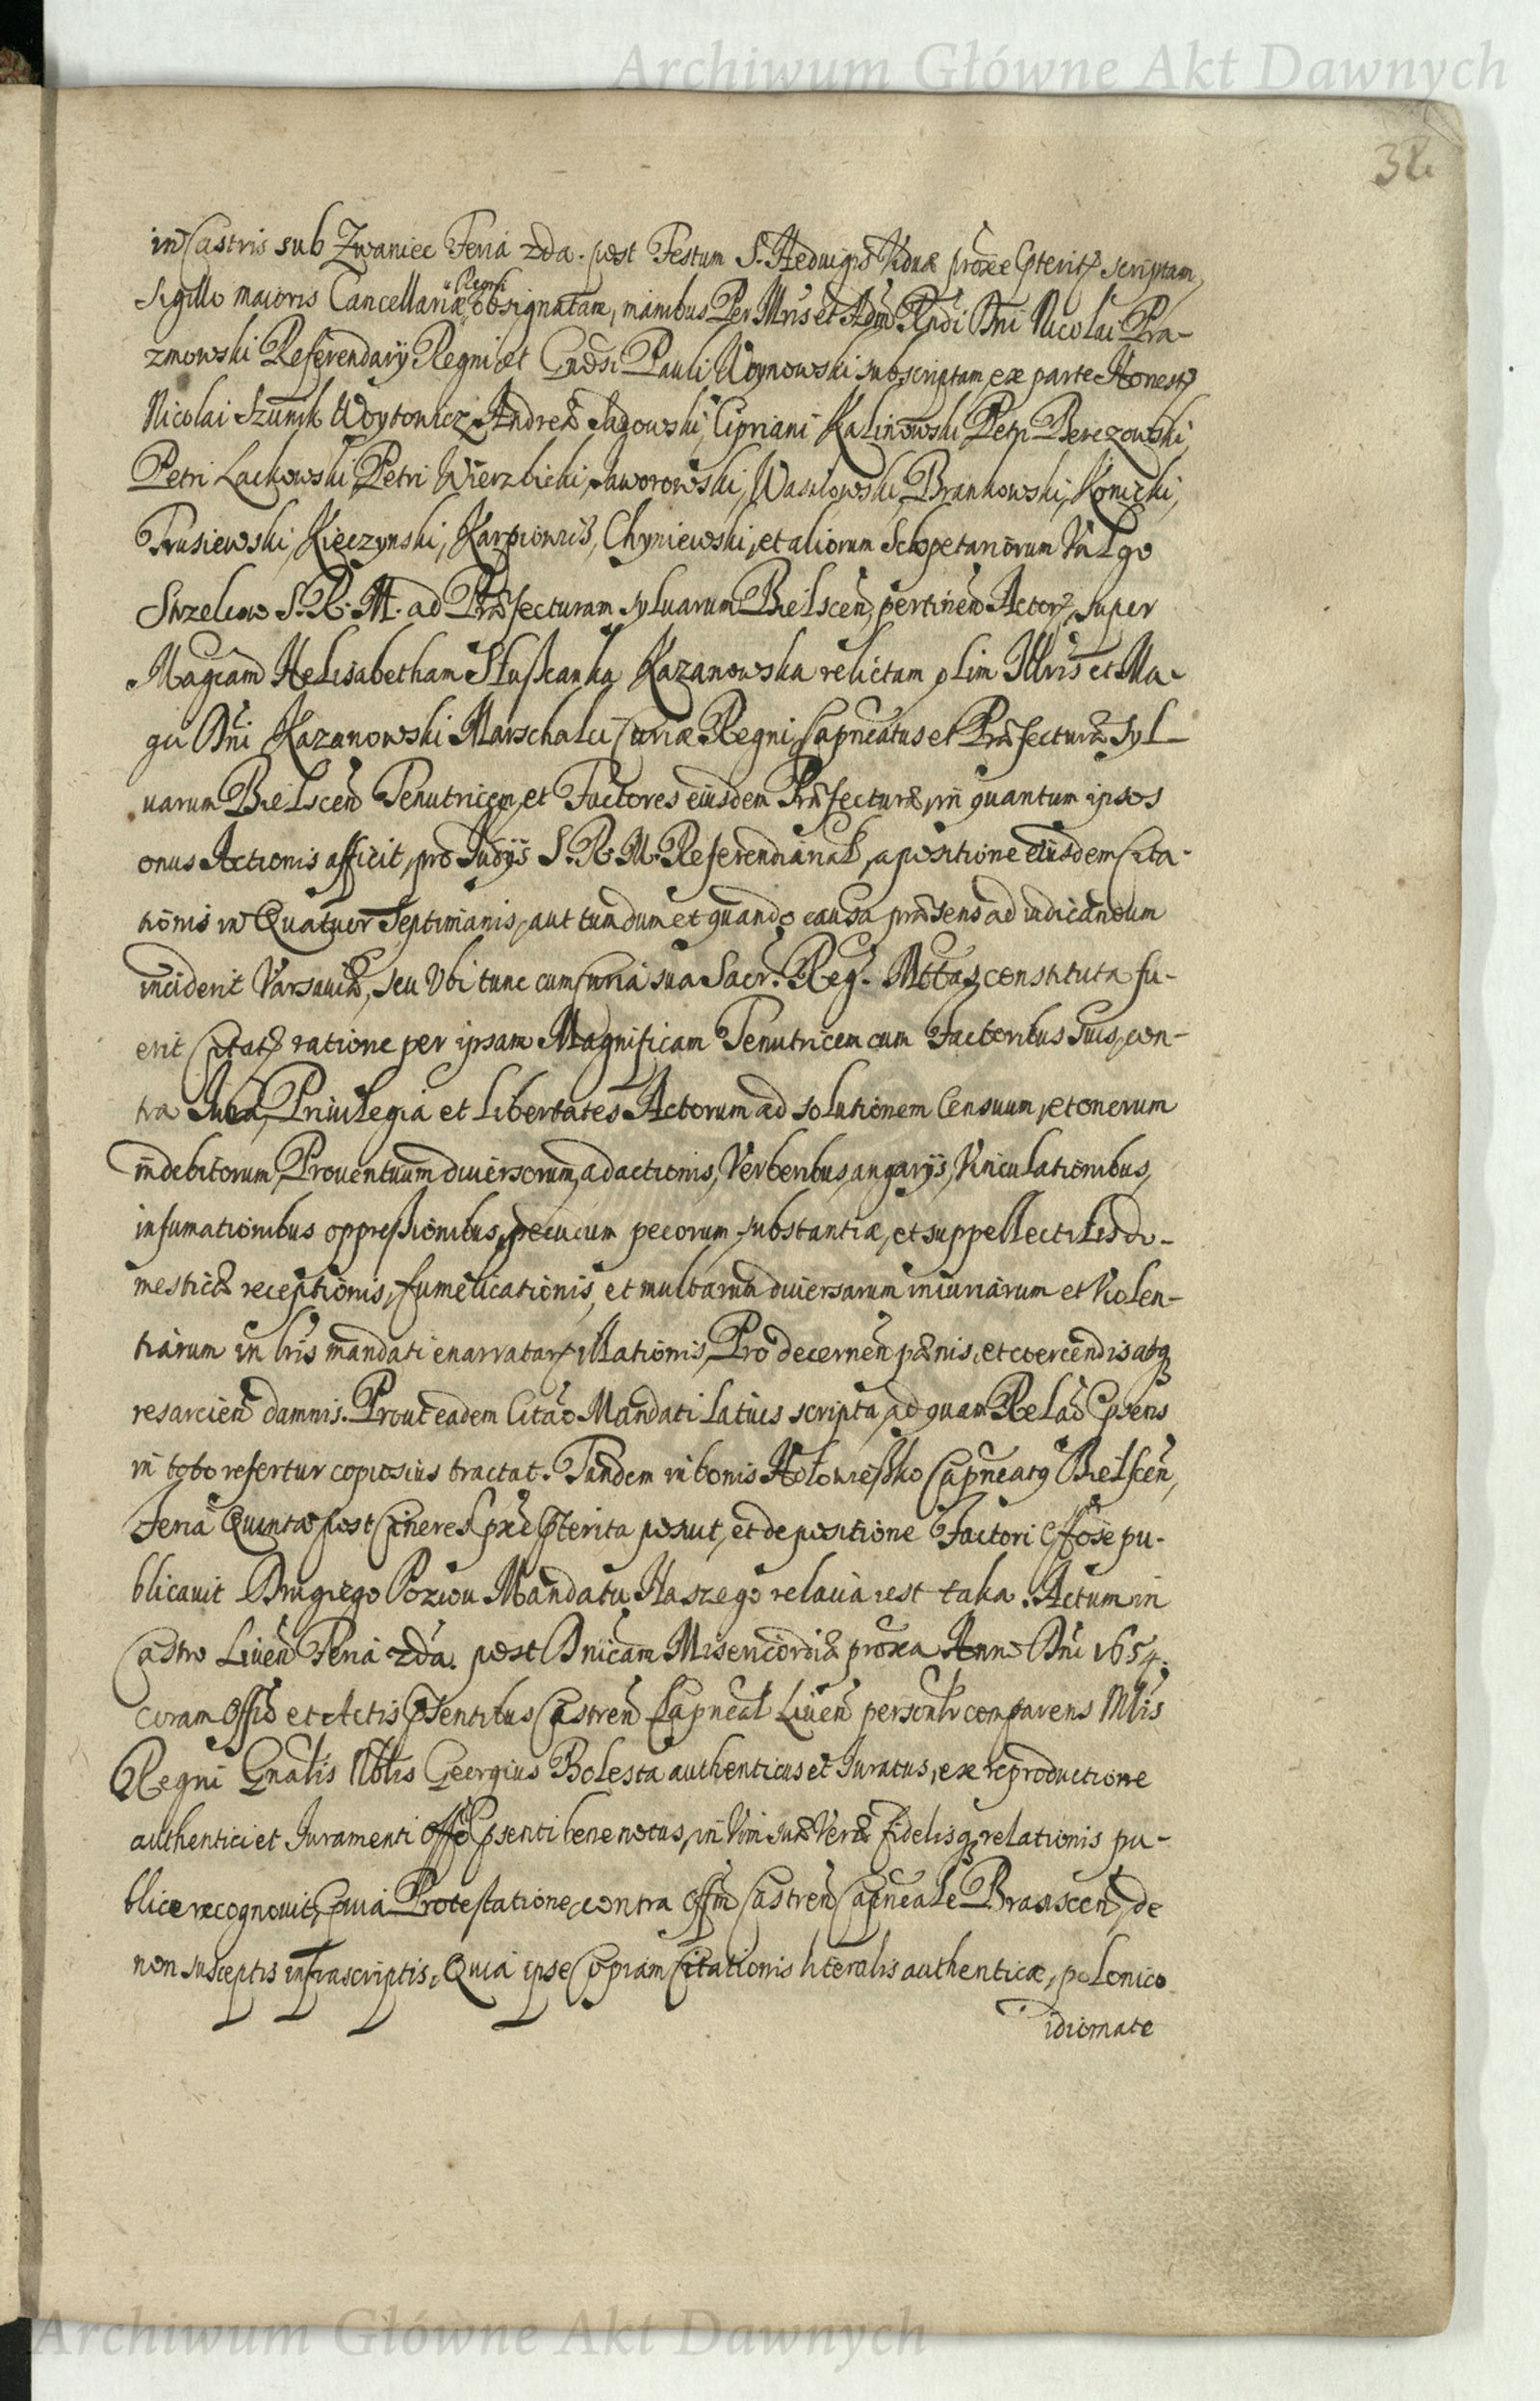 Archiwum Główne Akt Dawnych
32
in Castris sub Zwaniec Feria 2da. post Festum S. Hedvigis Viduæ proxe pterit scriptam,
Sigillo maioris Cancellariæ Regni obsignatam, manibus Per Illris et Adm Rndi Dni Nicolai Pra-
zmowski Referendarÿ Regni et Gnosi Pauli Woynowski subscriptam, ex parte Honest
Nicolai Szumk Woytowicz, Andreæ Sadowski, Cipriani Kalinowski, Petri Berezowski,
Petri Lackowski, Petri Wierzbicki, Jaworowski, Wasilowski, Brankowski, Konicki,
Trusiewski, Kieczynski, Karpiowicz, Chyniewski, et aliorum Sclopetariorum Vulgo
Strzelcow S. R. M. ad Præfecturam Sylvarum Bielscen pertinen Actor, super
Magcam Helisabetham Słuszcanka Kazanowska relictam olim Illris et Ma-
gci Dni Kazanowski Marschalci Curiæ Regni, Capneatus et Præfecturæ Syl-
uarum Bielscen Tenutricem, et Factores eiusdem Præfecturæ, in quantum ipsos
onus Actionis afficit, pro Judÿs S. R. M. Referendarial, a positione eiusdem Cita-
tionis in Quatuor Septimanis, aut tum dum et quando causa præsens ad iudicandum
inciderit Varsauiæ, seu Vbi tunc cum Curia sua Sacr. Reg. Mttas constituta fu-
erit Citat ratione per ipsam Magnificam Tenutricem cum Factoribus Suis, con-
tra Jura, Priuilegia et Libertates Actorum ad solutionem Censuum, et onerum
indebitorum, Prouentuum diuersorum, adactionis, Verberibus, angarÿs, Vinculationibus,
infumationibus oppressionibus, pecucum pecorum substantiæ, et suppellectilis do-
mesticæ receptionis, fumelicationis, et multarum diuersarum iniuriarum et Violen-
tiarum in lris mandati enarratar illationis, Pro decernen pœnis, et coercendis atq
resarcien damnis. Prout eadem Citao Mandati latius scripta, ad quam Relao psens
in toto refertur copiosius tractat. Tandem in bonis Hołowiesko Capneatq Bielscen,
Feria Quinta post Cineres pxe pterita posuit, et de positione Factori Osose pu-
blicauit Drugiego Pozwu Mandatu Naszego relacia iest taka. Actum in
Castro Liuen Feria 2da. post Dnicam Misericordiæ proxa Anno Dni 1654.
Coram Offio et Actis psentibus Castren Capneal Liuen personlr comparens Mlis
Regni Gnalis Nblis Georgius Bolesta authenticus et Juratus, ex reproductione
authentici et Juramenti Offo psenti bene notus, in Vim suæ Veræ fidelisq relationis pu-
blice recognouit, Qua Protestatione, contra Offm Castren Capneale Branscen, de
non susceptis infrascriptis, Quia ipse Copiam Citationis literalis authenticæ, polonico
idiomate
Archiwum Główne Akt Dawnych